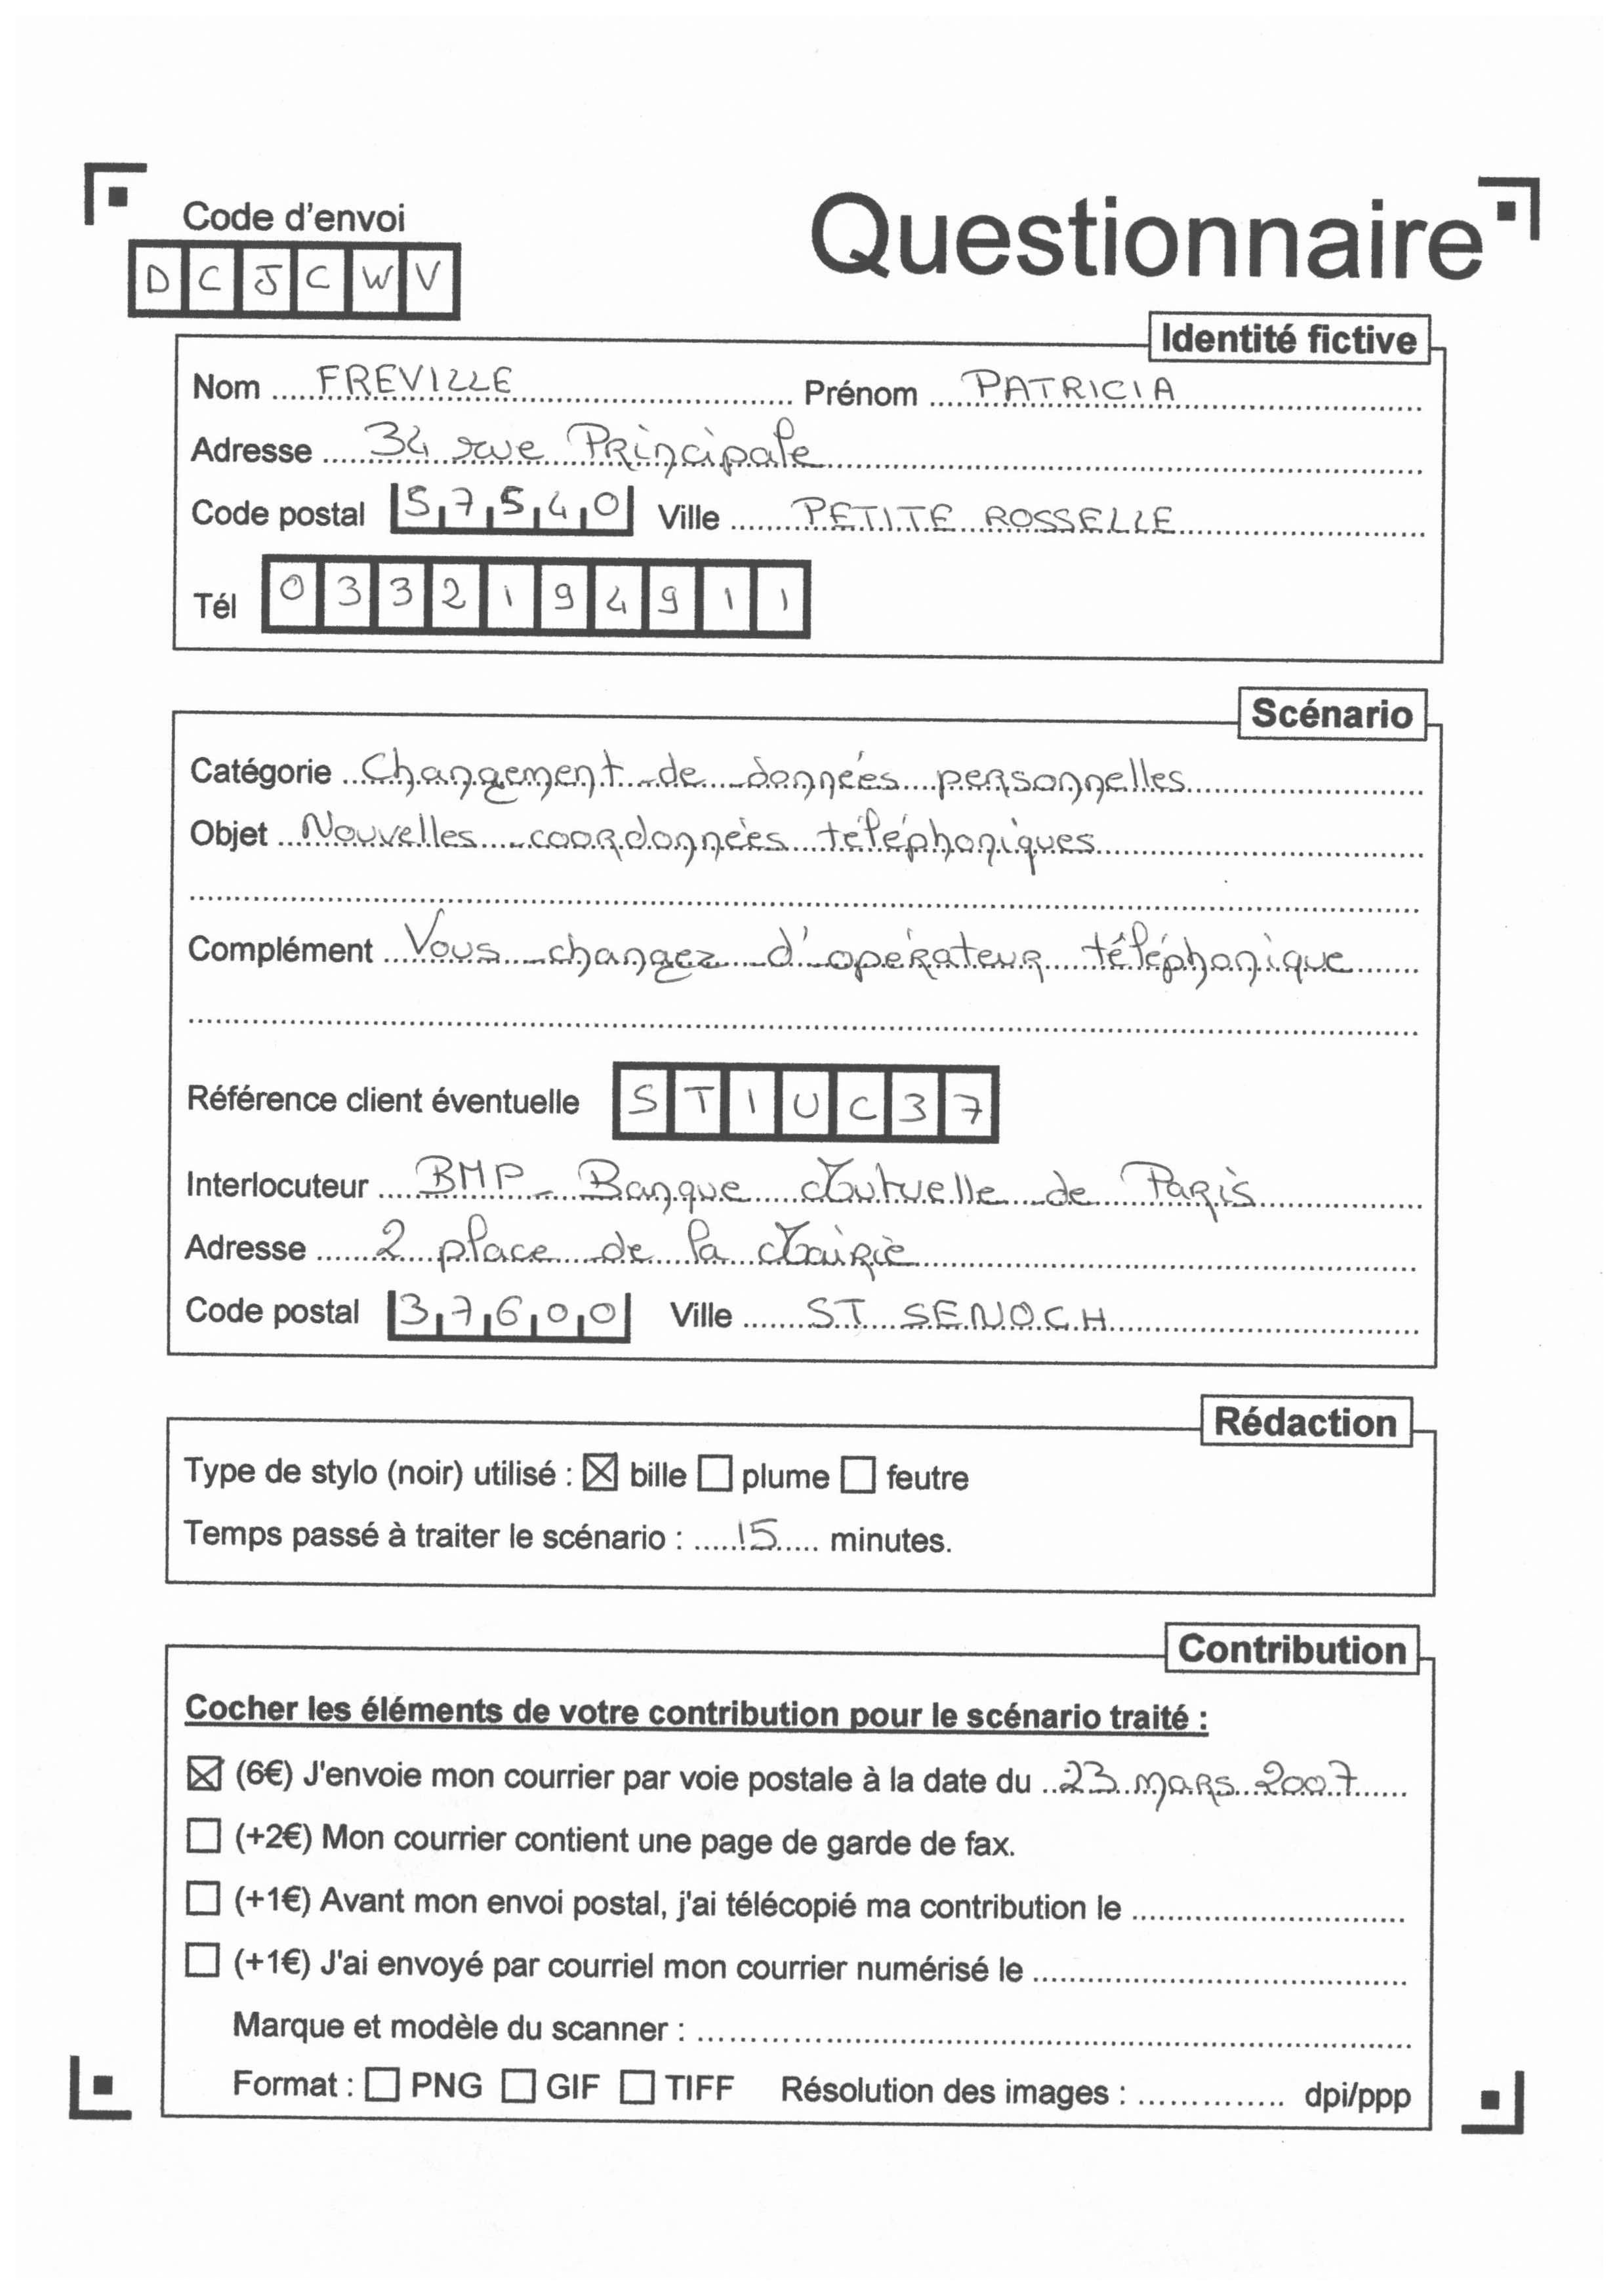 Code d'envoi
Questionnaire
D C J C W V
Identité fictive
Nom FREVILLE Prénom PATRICIA
Adresse 34 rue Principale
Code postal 57540 Ville PETITE ROSSELLE
Tél 0332194911
Scénario
Catégorie Changement de données personnelles
Objet Nouvelles coordonnées téléphoniques
Complément Vous changez d'opérateur téléphonique
Référence client éventuelle STIUC37
Interlocuteur BMP - Banque Mutuelle de Paris
Adresse 2 place de la Mairie
Code postal 37600 Ville ST SENOCH
Rédaction
Type de stylo (noir) utilisé : ☒ bille ☐ plume ☐ feutre
Temps passé à traiter le scénario : 15 minutes.
Contribution
Cocher les éléments de votre contribution pour le scénario traité :
☒ (6€) J'envoie mon courrier par voie postale à la date du 23 mars 2007
☐ (+2€) Mon courrier contient une page de garde de fax.
☐ (+1€) Avant mon envoi postal, j'ai télécopié ma contribution le
☐ (+1€) J'ai envoyé par courriel mon courrier numérisé le
Marque et modèle du scanner :
Format : ☐ PNG ☐ GIF ☐ TIFF Résolution des images : dpi/ppp